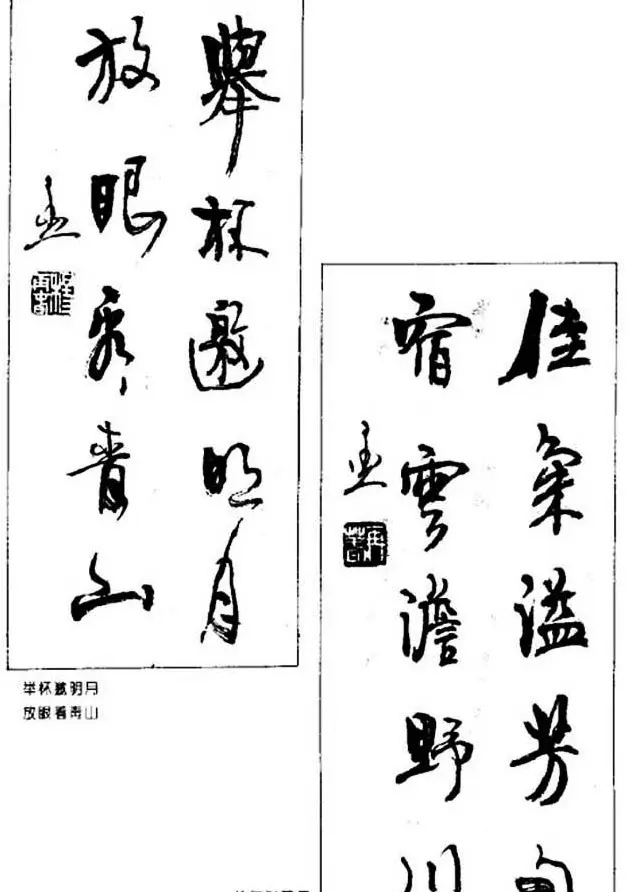 舉杯邀明月
放眼看青山
举杯邀明月
放眼看青山
佳氣溢芳
宿雲澹野川